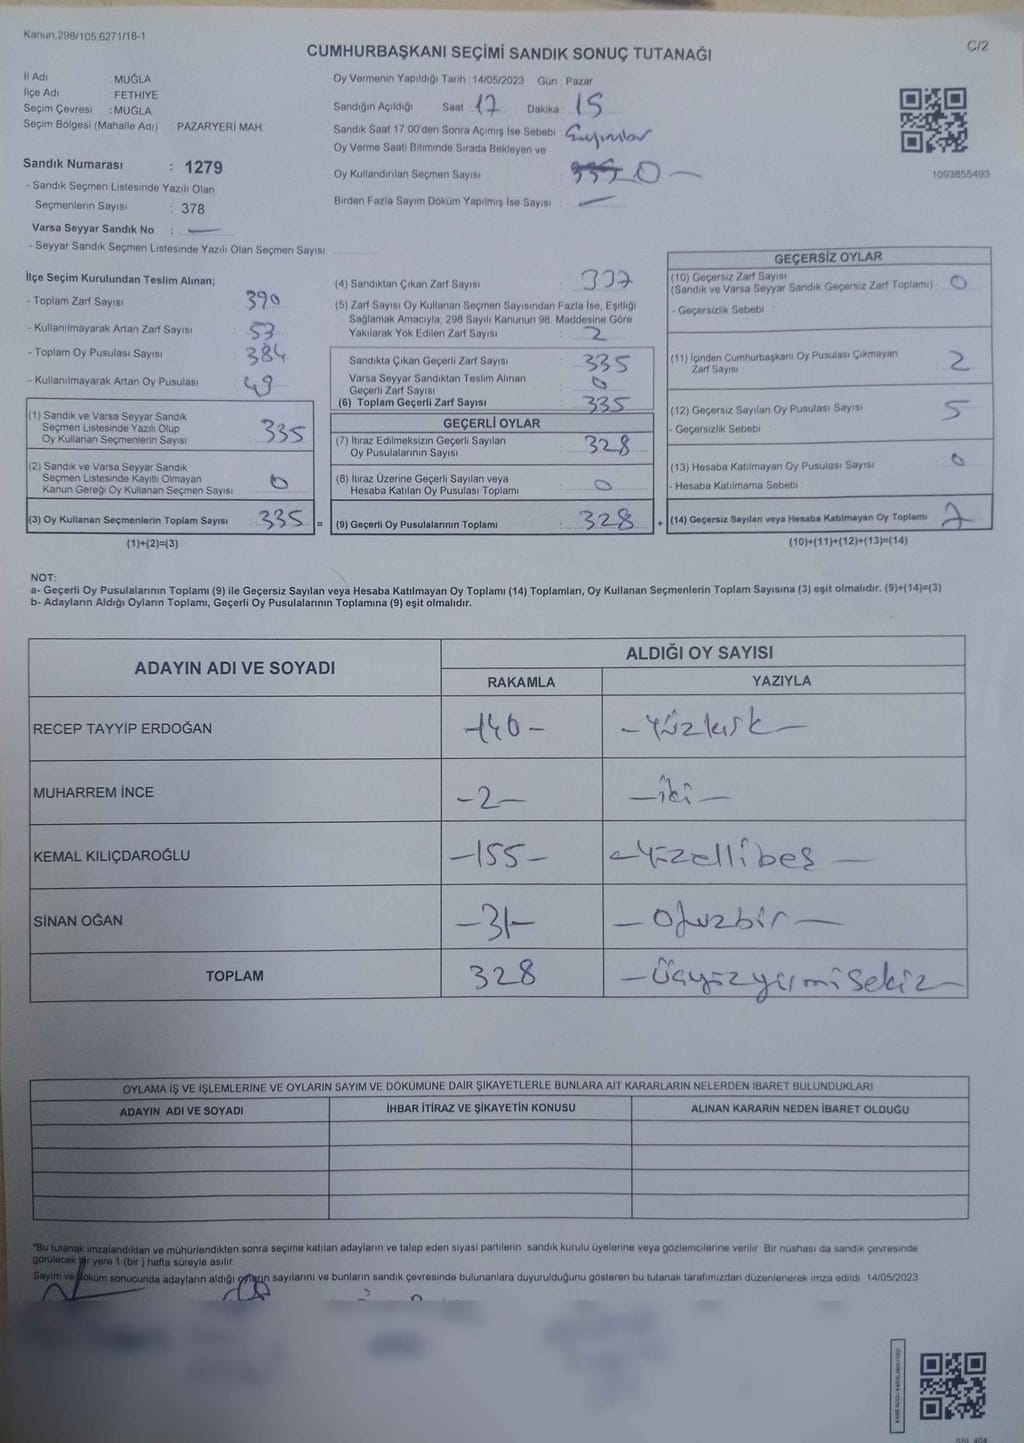 Kanun,298/105,6271/18-1
C/2
CUMHURBAŞKANI SEÇİMİ SANDIK SONUÇ TUTANAĞI
İl Adı : MUĞLA
İlçe Adı : FETHİYE
Seçim Çevresi : MUĞLA
Seçim Bölgesi (Mahalle Adı) : PAZARYERİ MAH.
Sandık Numarası : 1279
- Sandık Seçmen Listesinde Yazılı Olan
Seçmenlerin Sayısı : 378
Varsa Seyyar Sandık No : —
- Seyyar Sandık Seçmen Listesinde Yazılı Olan Seçmen Sayısı:
Oy Vermenin Yapıldığı Tarih :14/05/2023 Gün : Pazar
Sandığın Açıldığı Saat : 17 Dakika : 15
Sandık Saat 17:00'den Sonra Açılmış İse Sebebi :
Oy Verme Saati Bitiminde Sırada Bekleyen ve
Oy Kullandırılan Seçmen Sayısı : 0 —
Birden Fazla Sayım Döküm Yapılmış İse Sayısı : —
1093855493
İlçe Seçim Kurulundan Teslim Alınan;
- Toplam Zarf Sayısı : 390
- Kullanılmayarak Artan Zarf Sayısı : 53
- Toplam Oy Pusulası Sayısı : 384
- Kullanılmayarak Artan Oy Pusulası : 49
(1) Sandık ve Varsa Seyyar Sandık
Seçmen Listesinde Yazılı Olup
Oy Kullanan Seçmenlerin Sayısı : 335
(2) Sandık ve Varsa Seyyar Sandık
Seçmen Listesinde Kayıtlı Olmayan
Kanun Gereği Oy Kullanan Seçmen Sayısı : 0
(3) Oy Kullanan Seçmenlerin Toplam Sayısı : 335 =
(1)+(2)=(3)
(4) Sandıktan Çıkan Zarf Sayısı : 337
(5) Zarf Sayısı Oy Kullanan Seçmen Sayısından Fazla İse, Eşitliği
Sağlamak Amacıyla, 298 Sayılı Kanunun 98. Maddesine Göre
Yakılarak Yok Edilen Zarf Sayısı : 2
Sandıkta Çıkan Geçerli Zarf Sayısı : 335
Varsa Seyyar Sandıktan Teslim Alınan
Geçerli Zarf Sayısı : 0
(6) Toplam Geçerli Zarf Sayısı : 335
GEÇERLİ OYLAR
(7) İtiraz Edilmeksizin Geçerli Sayılan
Oy Pusulalarının Sayısı : 328
(8) İtiraz Üzerine Geçerli Sayılan veya
Hesaba Katılan Oy Pusulası Toplamı : 0
(9) Geçerli Oy Pusulalarının Toplamı : 328 +
GEÇERSİZ OYLAR
(10) Geçersiz Zarf Sayısı
(Sandık ve Varsa Seyyar Sandık Geçersiz Zarf Toplamı) : 0
- Geçersizlik Sebebi :
(11) İçinden Cumhurbaşkanı Oy Pusulası Çıkmayan
Zarf Sayısı : 2
(12) Geçersiz Sayılan Oy Pusulası Sayısı : 5
- Geçersizlik Sebebi :
(13) Hesaba Katılmayan Oy Pusulası Sayısı : 0
- Hesaba Katılmama Sebebi :
(14) Geçersiz Sayılan veya Hesaba Katılmayan Oy Toplamı : 7
(10)+(11)+(12)+(13)=(14)
NOT:
a- Geçerli Oy Pusulalarının Toplamı (9) ile Geçersiz Sayılan veya Hesaba Katılmayan Oy Toplamı (14) Toplamları, Oy Kullanan Seçmenlerin Toplam Sayısına (3) eşit olmalıdır. (9)+(14)=(3)
b- Adayların Aldığı Oyların Toplamı, Geçerli Oy Pusulalarının Toplamına (9) eşit olmalıdır.
ADAYIN ADI VE SOYADI
ALDIĞI OY SAYISI
RAKAMLA YAZIYLA
RECEP TAYYİP ERDOĞAN -140- -Yüzkırk-
MUHARREM İNCE -2- -İki-
KEMAL KILIÇDAROĞLU -155- -Yüzellibeş-
SİNAN OĞAN -31- -Otuzbir-
TOPLAM 328 -Üçyüzyirmisekiz-
OYLAMA İŞ VE İŞLEMLERİNE VE OYLARIN SAYIM VE DÖKÜMÜNE DAİR ŞİKAYETLERLE BUNLARA AİT KARARLARIN NELERDEN İBARET BULUNDUKLARI
ADAYIN ADI VE SOYADI İHBAR İTİRAZ VE ŞİKAYETİN KONUSU ALINAN KARARIN NEDEN İBARET OLDUĞU
*Bu tutanak imzalandıktan ve mühürlendikten sonra seçime katılan adayların ve talep eden siyasi partilerin sandık kurulu üyelerine veya gözlemcilerine verilir. Bir nüshası da sandık çevresinde
görülecek bir yere 1 (bir ) hafta süreyle asılır.
Sayım ve döküm sonucunda adayların aldığı oyların sayılarını ve bunların sandık çevresinde bulunanlara duyurulduğunu gösteren bu tutanak tarafımızdan düzenlenerek imza edildi. 14/05/2023